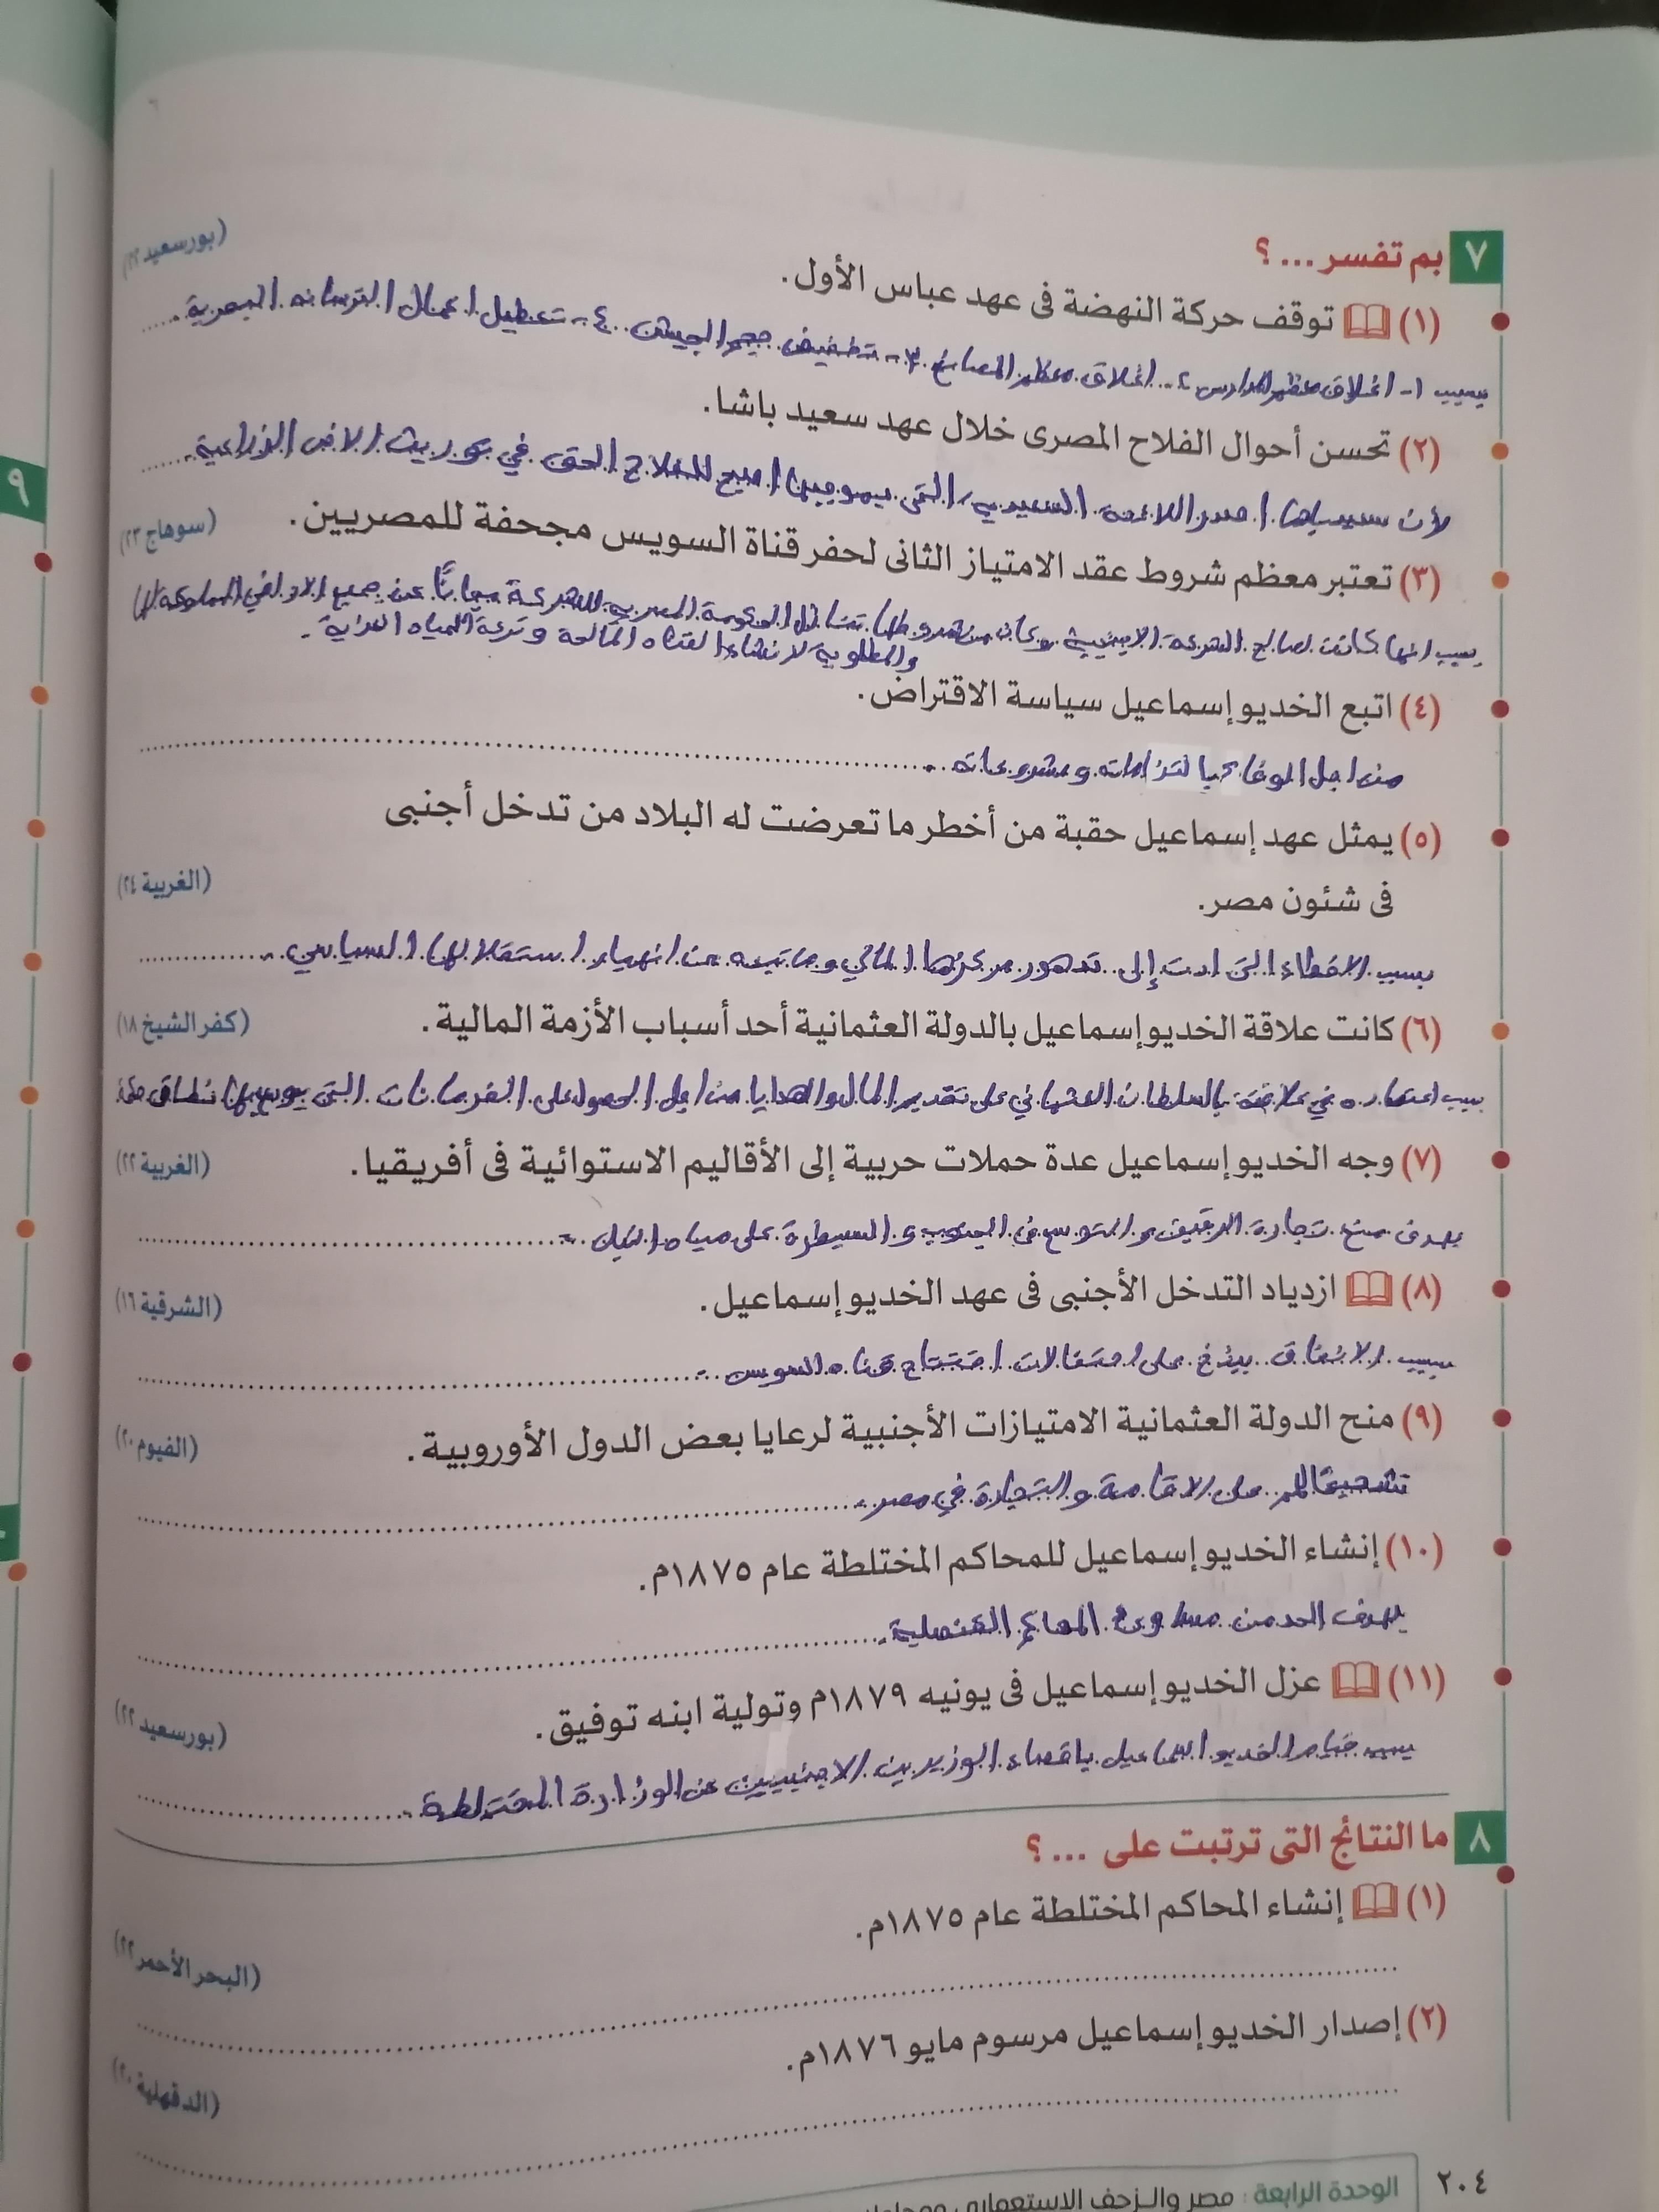 ٧ بم تفسر ... ؟
(١) توقف حركة النهضة فى عهد عباس الأول. (بورسعيد ٢٢)
بسبب ١- اغلاق معظم المدارس ٢- اغلاق معظم المصانع ٣- تخفيض حجم الجيش ٤- تعطيل اعمال الترسانه البحرية.
(٢) تحسن أحوال الفلاح المصرى خلال عهد سعيد باشا.
لأن سعيد باشا اصدر اللائحة السعيدية التى بموجبها اصبح للفلاح الحق في توريث الارض الزراعية.
(٣) تعتبر معظم شروط عقد الامتياز الثانى لحفر قناة السويس مجحفة للمصريين. (سوهاج ٢٣)
بسبب انها كانت لصالح الشركة الاجنبية وكان من شروطها تنازل الحكومة المصرية للشركة مجاناً عن جميع الاراضي المملوكة لها
والمطلوبة لانشاء القناه المالحة وترعة المياه العذبة.
(٤) اتبع الخديو إسماعيل سياسة الاقتراض.
من اجل الوفاء بالتزاماته ومشروعاته.
(٥) يمثل عهد إسماعيل حقبة من أخطر ما تعرضت له البلاد من تدخل أجنبى
فى شئون مصر. (الغربية ٢٤)
بسبب الاخطاء التى ادت إلى تدهور مركزها المالي وما تبعه من انهيار استقلالها السياسي.
(٦) كانت علاقة الخديو إسماعيل بالدولة العثمانية أحد أسباب الأزمة المالية. (كفر الشيخ ١٨)
بسبب اعتماده في علاقته بالسلطان العثماني على تقديم المال والهدايا من اجل الحصول على الفرمانات التى يوسع بها نطاق حكمه
(٧) وجه الخديو إسماعيل عدة حملات حربية إلى الأقاليم الاستوائية فى أفريقيا. (الغربية ٢٢)
بهدف منع تجارة الرقيق والتوسع فى الجنوب والسيطرة على مياه النيل.
(٨) ازدياد التدخل الأجنبى فى عهد الخديو إسماعيل. (الشرقية ١٦)
بسبب الانفاق ببذخ على احتفالات افتتاح قناه السويس.
(٩) منح الدولة العثمانية الامتيازات الأجنبية لرعايا بعض الدول الأوروبية. (الفيوم ٢٠)
تشجيعًا لهم على الاقامة والتجارة في مصر.
(١٠) إنشاء الخديو إسماعيل للمحاكم المختلطة عام ١٨٧٥م.
بهدف الحد من مساوئ المحاكم القنصلية.
(١١) عزل الخديو إسماعيل فى يونيه ١٨٧٩م وتولية ابنه توفيق. (بورسعيد ٢٢)
بسبب قيام الخديو اسماعيل باقصاء الوزيرين الاجنبيين عن الوزارة المختلطة.
٨ ما النتائج التى ترتبت على ... ؟
(١) إنشاء المحاكم المختلطة عام ١٨٧٥م.
(البحر الأحمر ٢٢)
(٢) إصدار الخديو إسماعيل مرسوم مايو ١٨٧٦م.
(الدقهلية ٢٠)
٢٠٤ الوحدة الرابعة : مصر والزحف الاستعمارى
٩